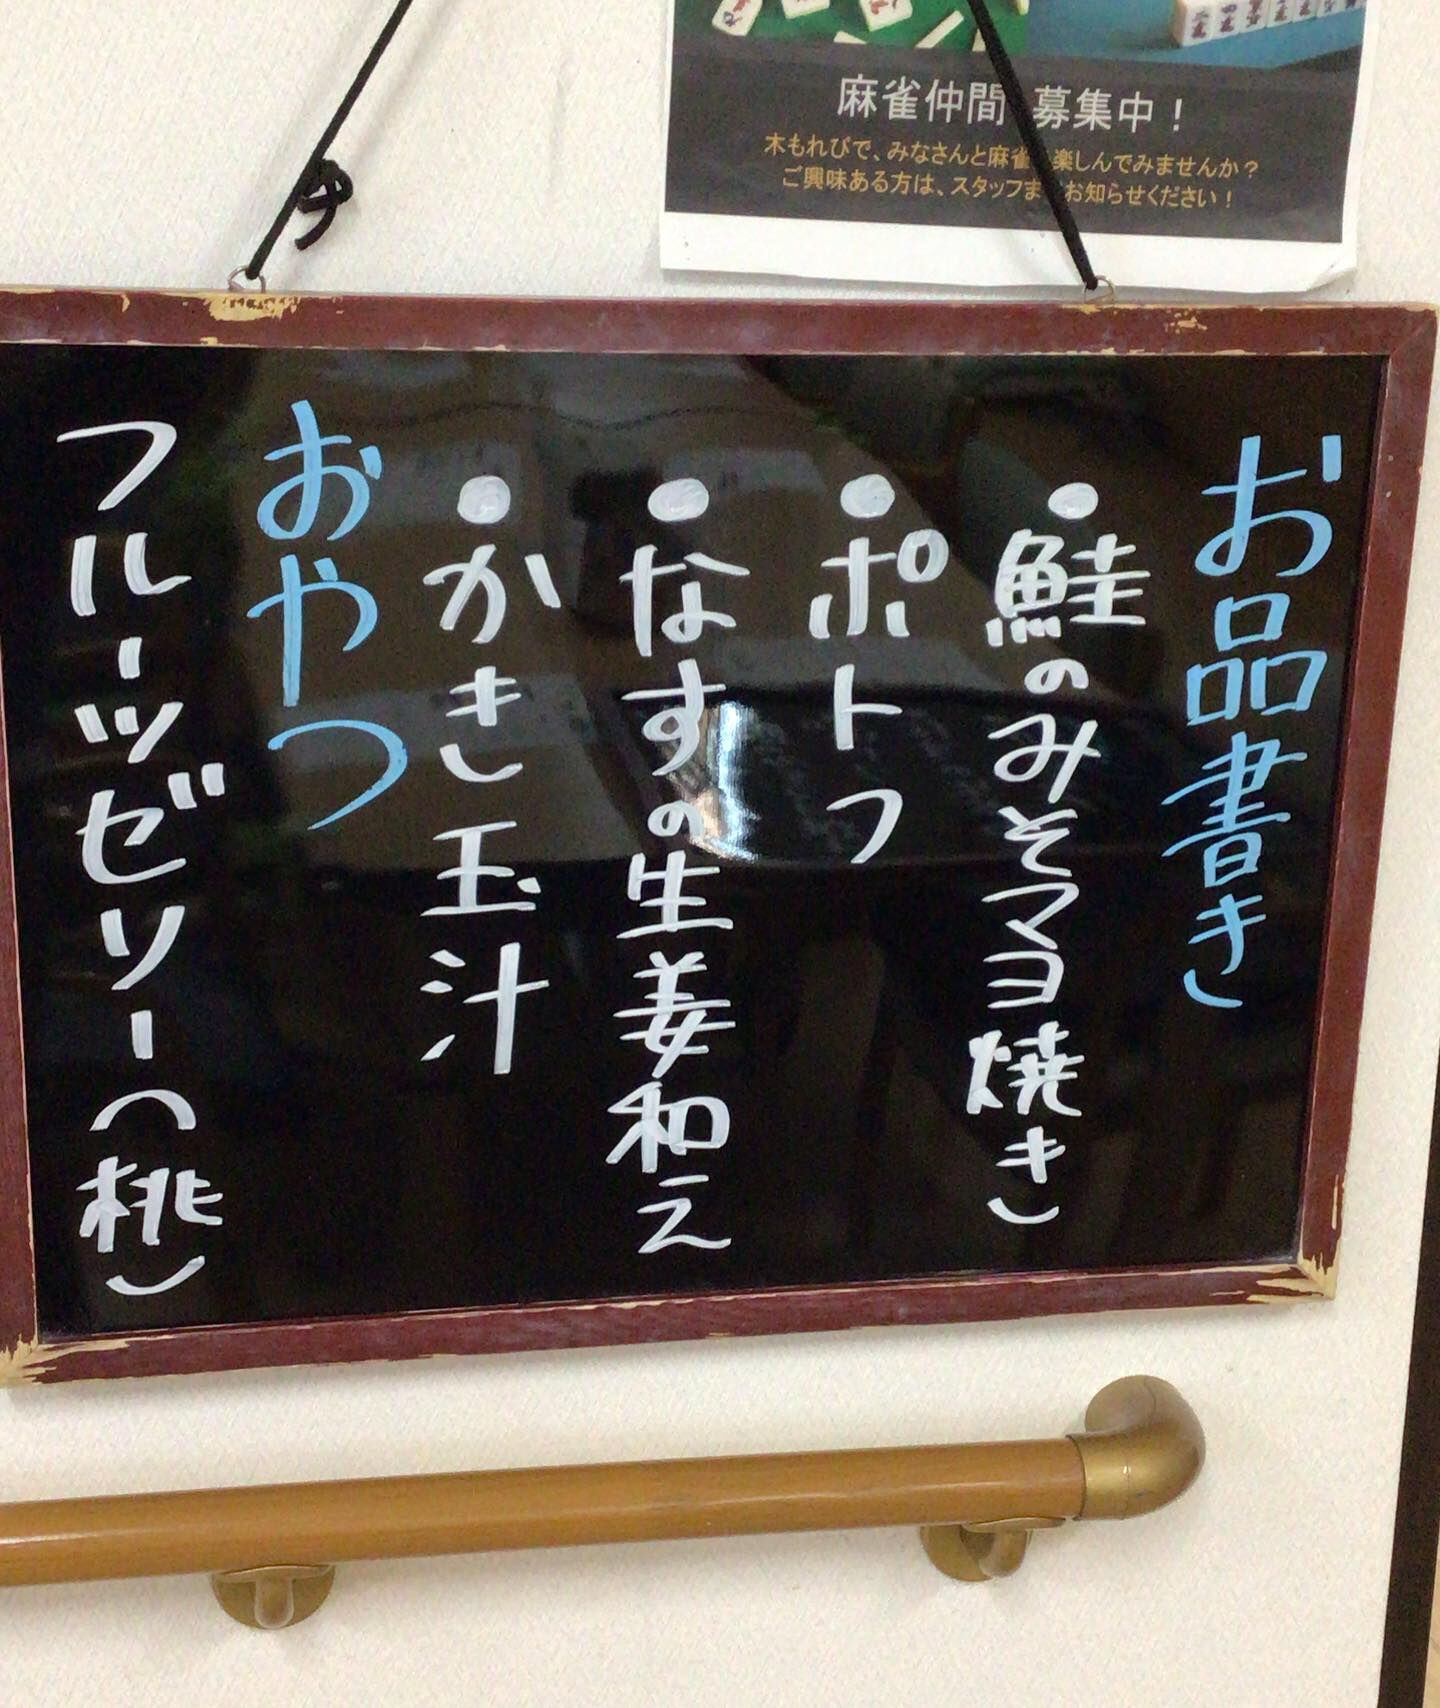 麻雀仲間 募集中！
木もれびで、みなさんと麻雀 楽しんでみませんか？
ご興味ある方は、スタッフま お知らせください！
お品書き
●鮭のみそマヨ焼き
●ポトフ
●なすの生姜和え
●かき玉汁
おやつ
フルーツゼリー(桃)